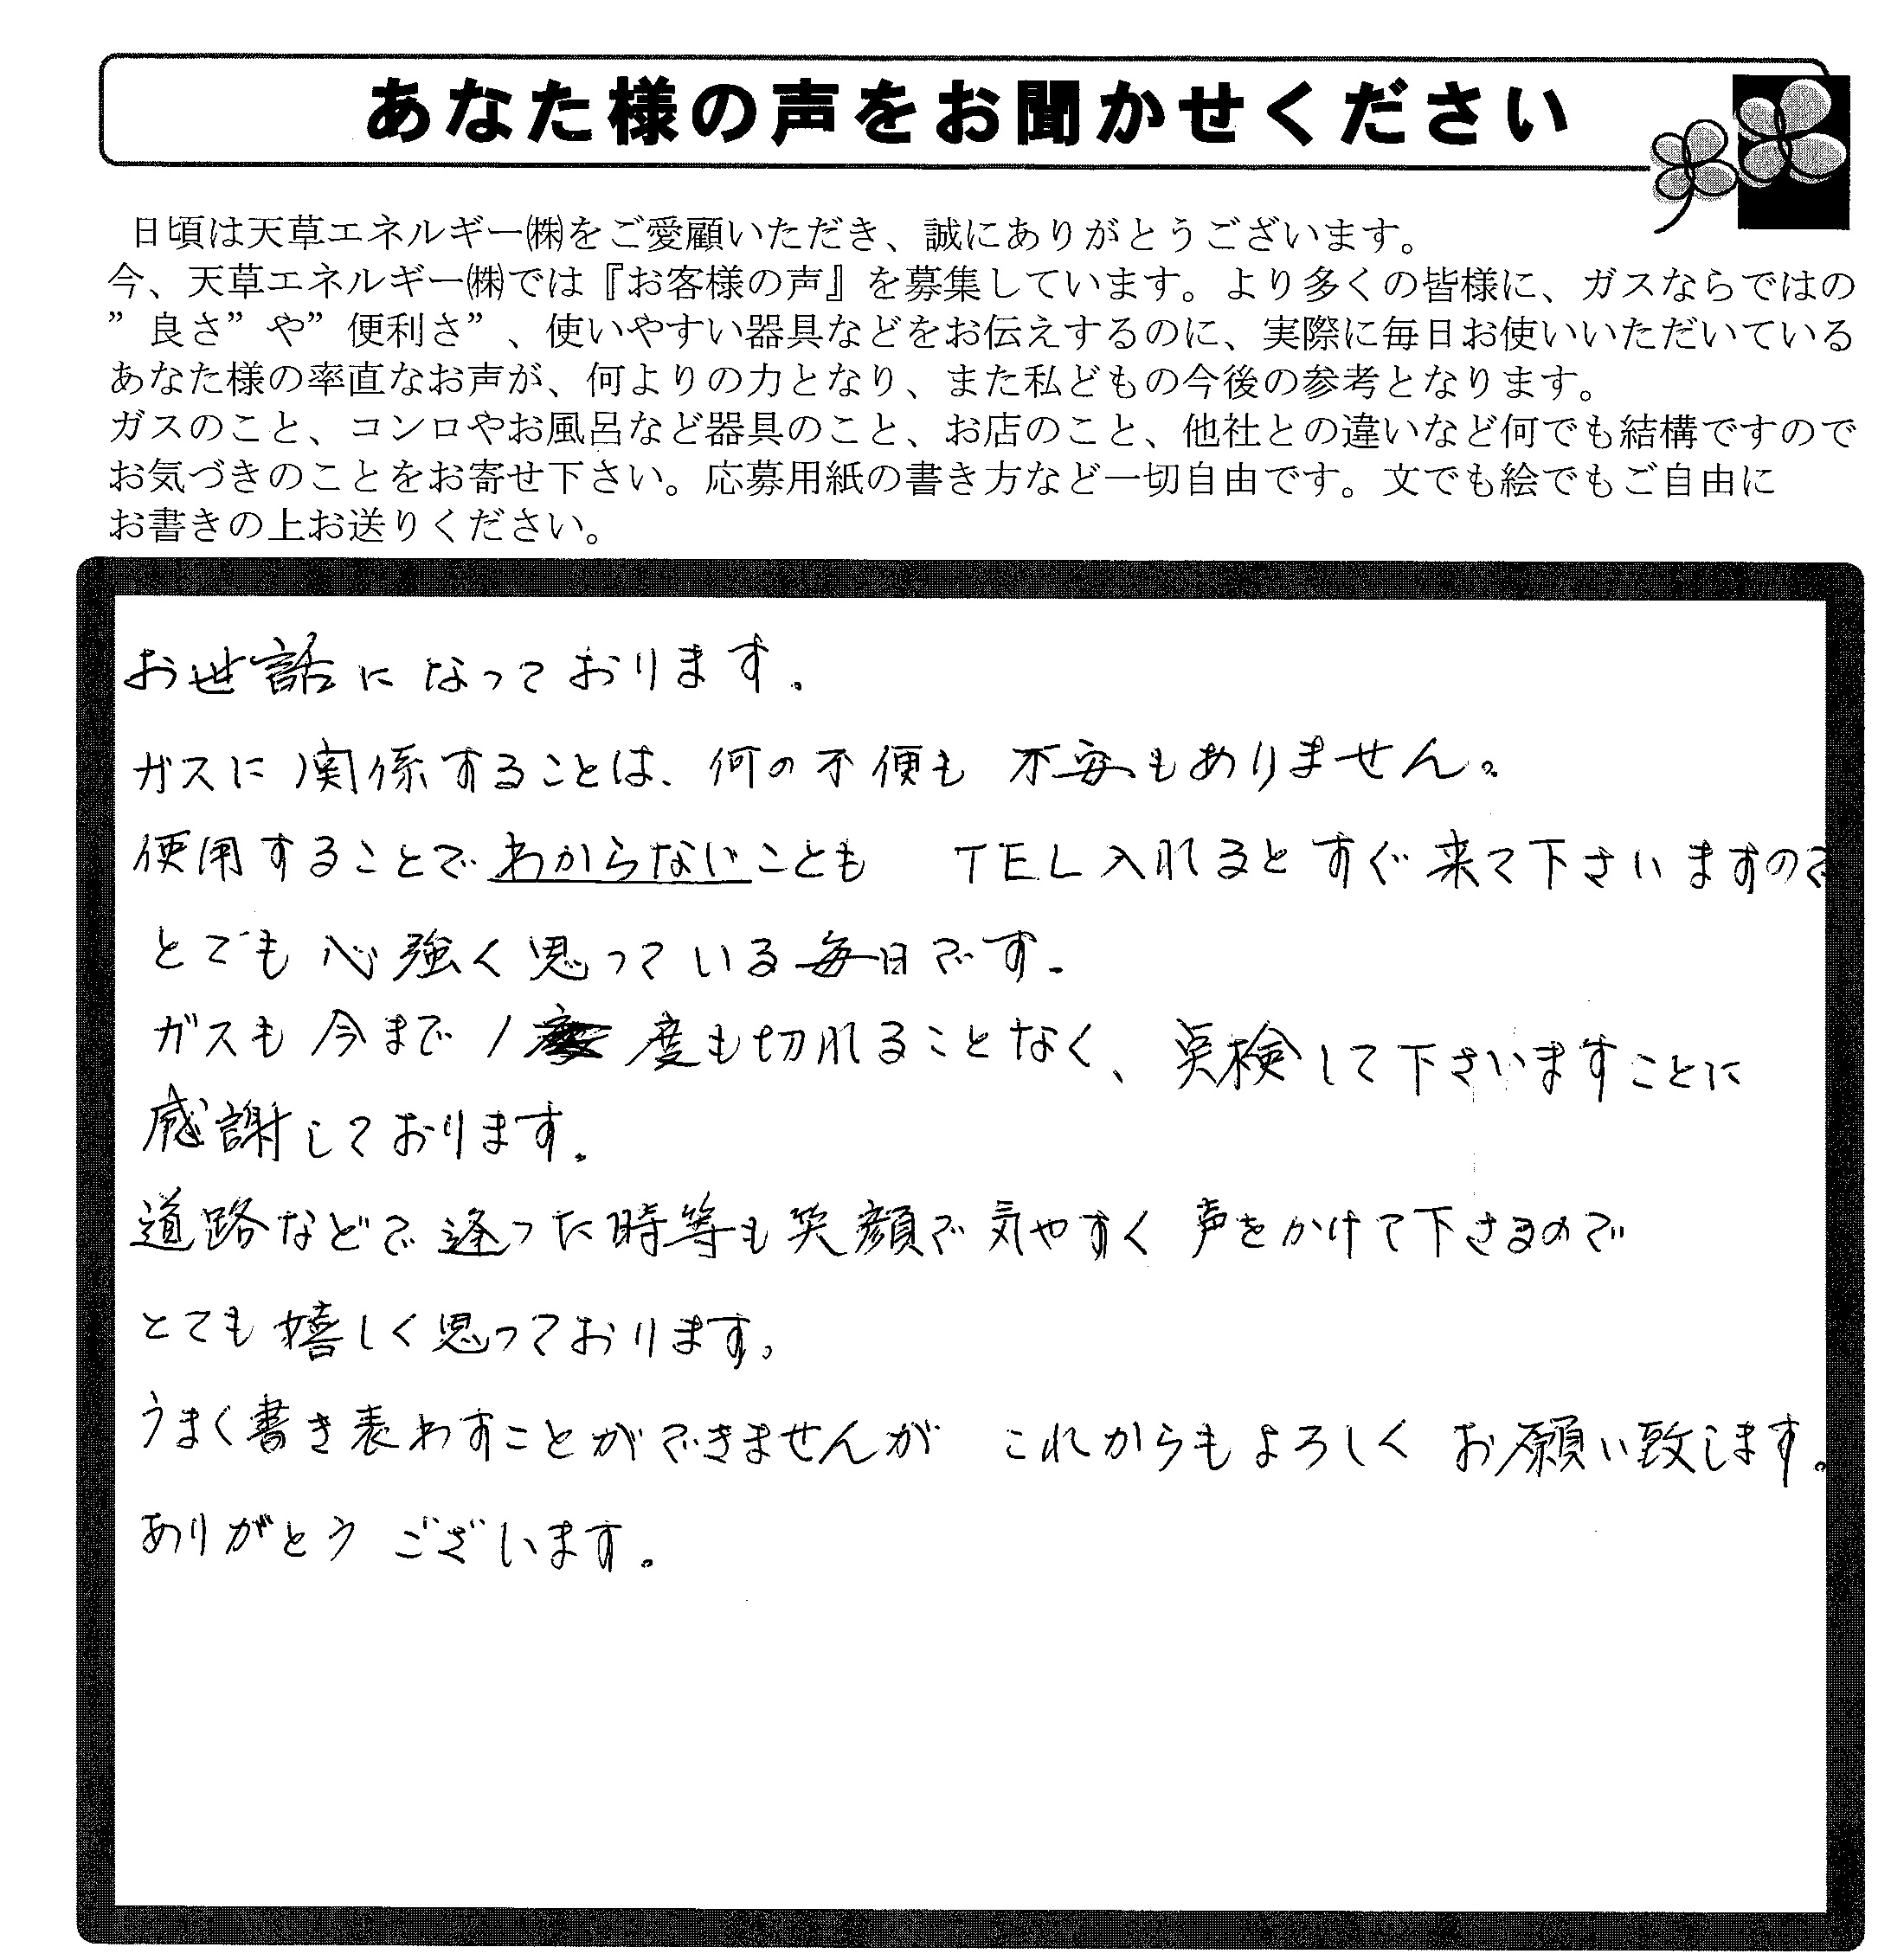 あなた様の声をお聞かせください
日頃は天草エネルギー㈱をご愛顧いただき、誠にありがとうございます。
今、天草エネルギー㈱では『お客様の声』を募集しています。より多くの皆様に、ガスならではの
”良さ”や”便利さ”、使いやすい器具などをお伝えするのに、実際に毎日お使いいただいている
あなた様の率直なお声が、何よりの力となり、また私どもの今後の参考となります。
ガスのこと、コンロやお風呂など器具のこと、お店のこと、他社との違いなど何でも結構ですので
お気づきのことをお寄せ下さい。応募用紙の書き方など一切自由です。文でも絵でもご自由に
お書きの上お送りください。
お世話になっております.
ガスに関係することは、何の不便も 不安もありません。
使用することでわからないことも TEL入れるとすぐ来て下さいますので
とても心強く思っている毎日です.
ガスも今まで1度も切れることなく、点検して下さいますことに
感謝しております.
道路などで逢った時等も笑顔で気やすく声をかけて下さるので
とても嬉しく思っております。
うまく書き表わすことができませんが これからもよろしくお願い致します。
ありがとうございます.